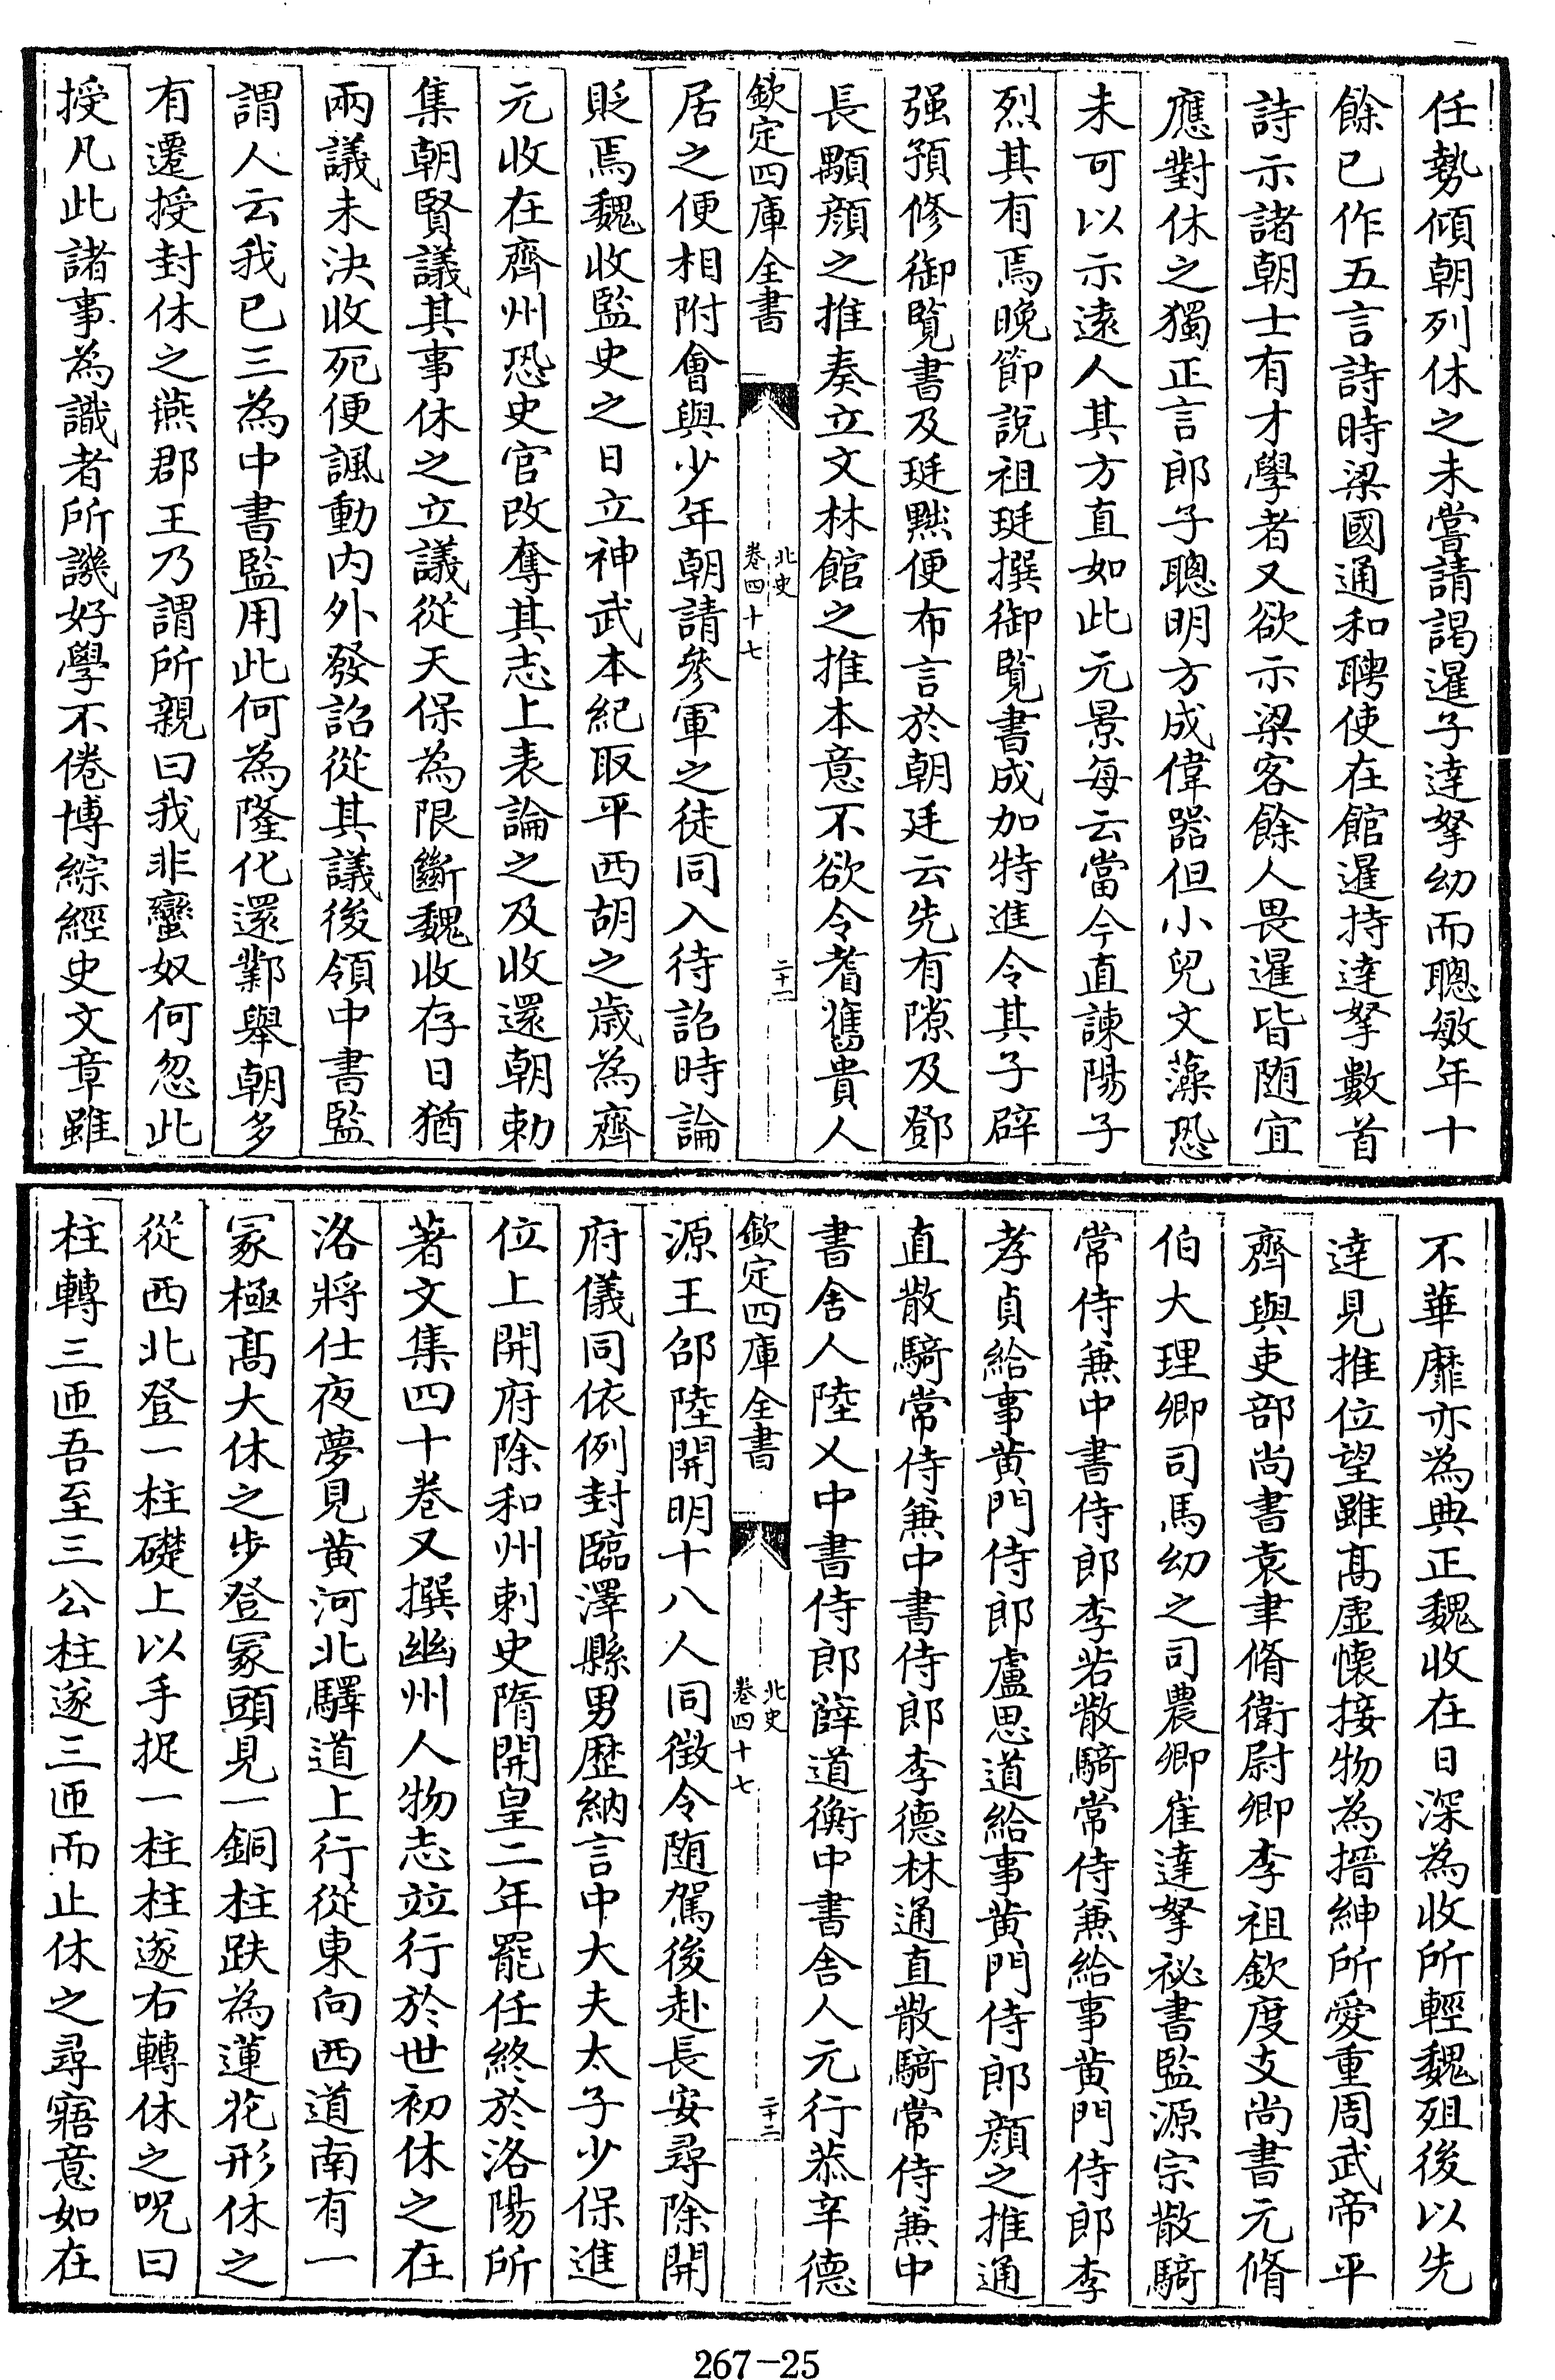 任勢傾朝列休之未嘗請謁暹子達拏幼而聰敏年十
餘已作五言詩時梁國通和聘使在館暹持達拏數首
詩示諸朝士有才學者又欲示梁客餘人畏暹皆随宜
應對休之獨正言郎子聰明方成偉器但小兒文藻恐
未可以示遠人其方直如此元景每云當今直諫陽子
烈其有焉晚節說祖珽撰御覧書成加特進令其子辟
强預修御覧書及珽黜便布言於朝廷云先有隙及鄧
長顒顔之推奏立文林館之推本意不欲令耆舊貴人
欽定四庫全書
北史
卷四十七
二十一
居之便相附會與少年朝請參軍之徒同入待詔時論
貶焉魏收監史之日立神武本紀取平西胡之歳為齊
元收在齊州恐史官改奪其志上表論之及收還朝勅
集朝賢議其事休之立議從天保為限斷魏收存日猶
兩議未決收死便諷動内外發詔從其議後領中書監
謂人云我已三為中書監用此何為隆化還鄴舉朝多
有遷授封休之燕郡王乃謂所親曰我非蠻奴何忽此
授凡此諸事為識者所譏好學不倦博綜經史文章雖
不華靡亦為典正魏收在日深為收所輕魏殂後以先
達見推位望雖髙虚懷接物為搢紳所愛重周武帝平
齊與吏部尚書袁聿脩衛尉卿李祖欽度支尚書元脩
伯大理卿司馬幼之司農卿崔達拏祕書監源宗散騎
常侍兼中書侍郎李若散騎常侍兼給事黄門侍郎李
孝貞給事黄門侍郎盧思道給事黄門侍郎顔之推通
直散騎常侍兼中書侍郎李德林通直散騎常侍兼中
書舍人陸乂中書侍郎薛道衡中書舍人元行恭辛德
欽定四庫全書
北史
卷四十七
二十二
源王邵陸開明十八人同徴令随駕後赴長安尋除開
府儀同依例封臨澤縣男歴納言中大夫太子少保進
位上開府除和州刺史隋開皇二年罷任終於洛陽所
著文集四十卷又撰幽州人物志竝行於世初休之在
洛將仕夜夢見黄河北驛道上行從東向西道南有一
冢極髙大休之步登冢頭見一銅柱趺為蓮花形休之
從西北登一柱礎上以手捉一柱柱遂右轉休之呪曰
柱轉三匝吾至三公柱遂三匝而止休之尋寤意如在
267-25